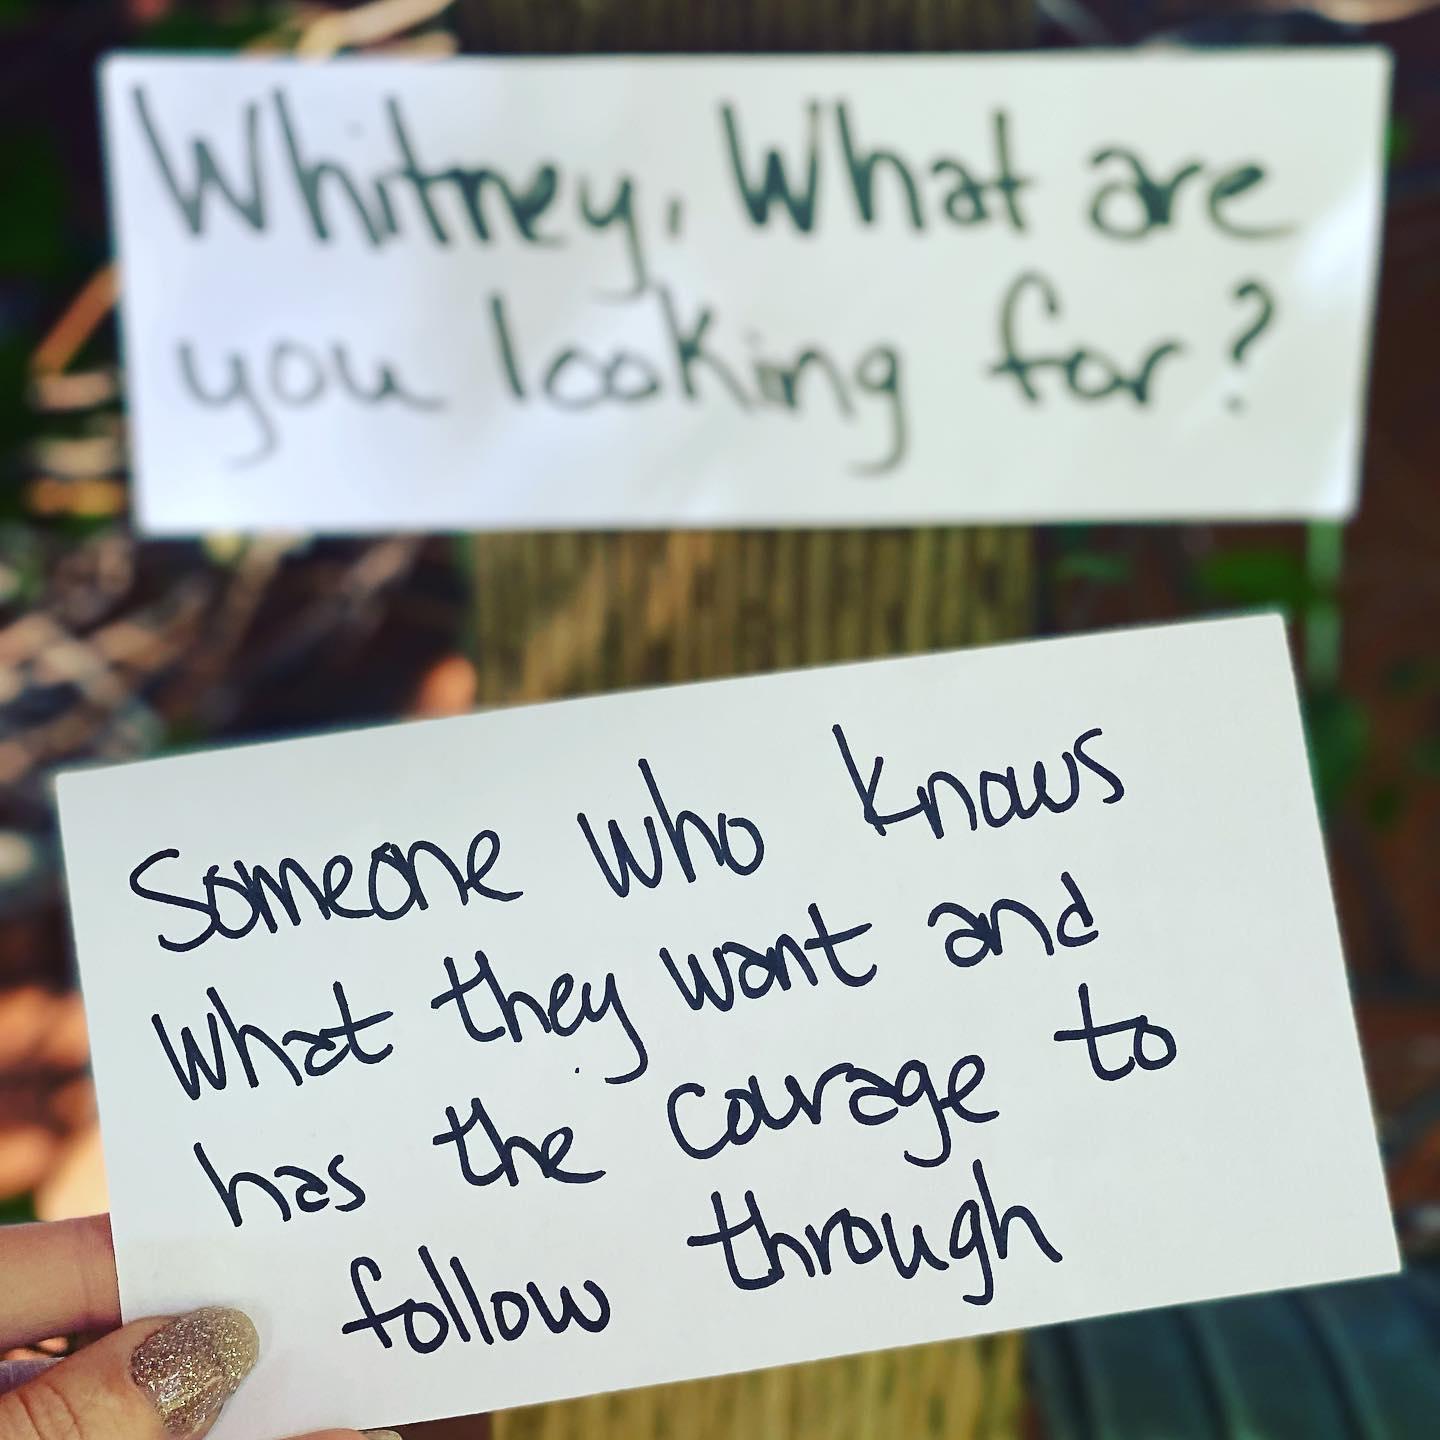 Whitney, What are
you looking for?
Someone who knows
What they want and
has the courage to
follow through